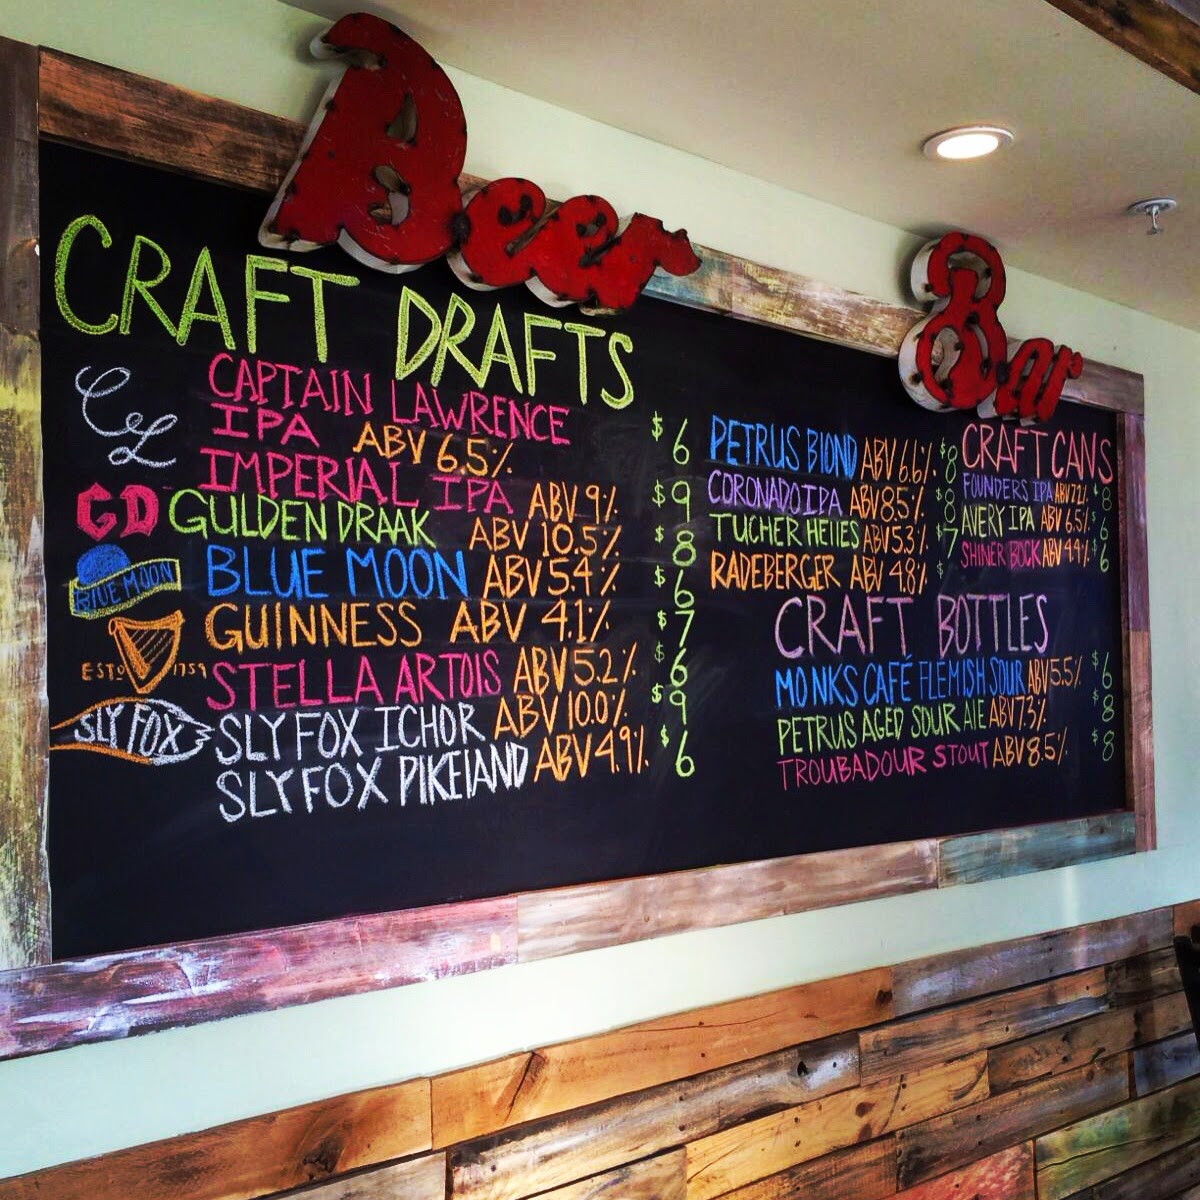 Beer Bar
CRAFT DRAFTS
CL
CAPTAIN LAWRENCE
IPA ABV 6.5% $6
IMPERIAL IPA ABV 9% $9
GD GULDEN DRAAK ABV 10.5% $8
BLUE MOON
BLUE MOON ABV 5.4% $6
GUINNESS ABV 4.1% $7
ESTD 1759
STELLA ARTOIS ABV 5.2% $6
SLY FOX
SLY FOX ICHOR ABV 10.0% $9
SLY FOX PIKELAND ABV 4.9% $6
PETRUS BLOND ABV 6.6% $8
CORONADO IPA ABV 8.5% $8
TUCHER HELLES ABV 5.3% $7
RADEBERGER ABV 4.8% $
CRAFT CANS
FOUNDERS IPA ABV 7.2% $8
AVERY IPA ABV 6.5% $6
SHINER BOCK ABV 4.4% $6
CRAFT BOTTLES
MONKS CAFÉ FLEMISH SOUR ABV 5.5% $6
PETRUS AGED SOUR ALE ABV 7.3% $8
TROUBADOUR STOUT ABV 8.5% $8